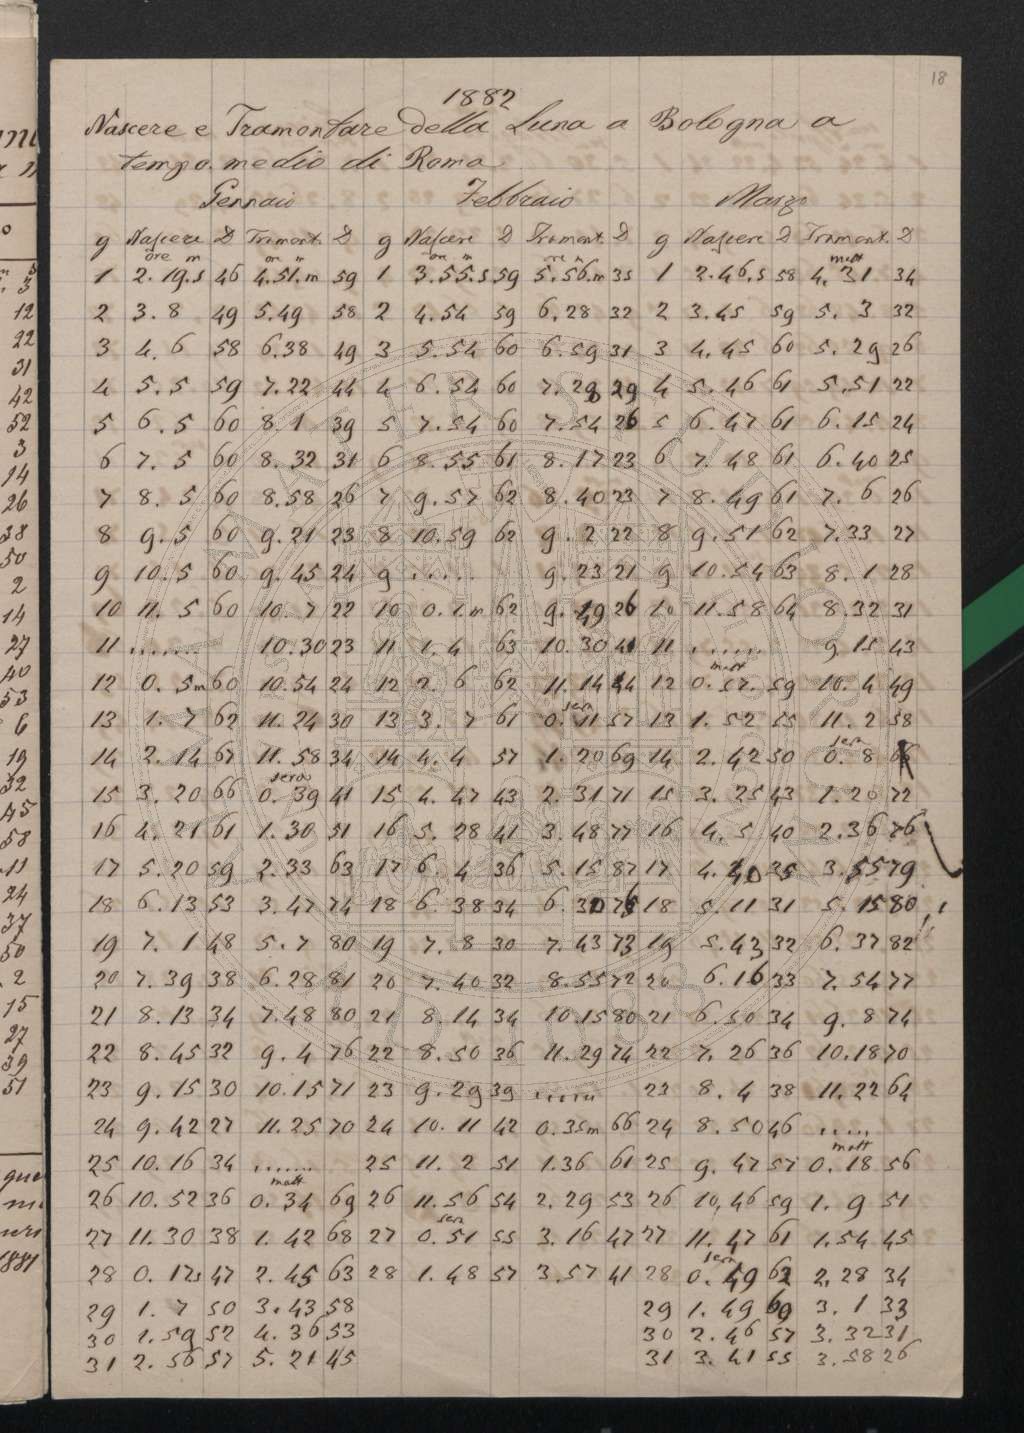 18
1882
Nascere e Tramontare della Luna a Bologna a
tempo medio di Roma
Gennaio Febbraio Marzo
g Nascere D Tramont. D g Nascere D Tramont. D g Nascere D Tramont. D
ore m ore m ore m ore m matt
1 2.19.s 46 4.51.m 59 1 3.55.s 59 5.56.m 35 1 2.46.s 58 4.31 34
2 3.8 49 5.49 58 2 4.54 59 6.28 32 2 3.45 59 5.3 32
3 4.6 58 6.38 49 3 5.54 60 6.59 31 3 4.45 60 5.29 26
4 5.5 59 7.22 44 4 6.54 60 7.28 29 4 5.46 61 5.51 22
5 6.5 60 8.1 39 5 7.54 60 7.54 26 5 6.47 61 6.15 24
6 7.5 60 8.32 31 6 8.55 61 8.17 23 6 7.48 61 6.40 25
7 8.5 60 8.58 26 7 9.57 62 8.40 23 7 8.49 61 7.6 26
8 9.5 60 9.21 23 8 10.59 62 9.2 22 8 9.51 62 7.33 27
9 10.5 60 9.45 24 9 ..... 9.23 21 9 10.54 63 8.1 28
10 11.5 60 10.7 22 10 0.1m 62 9.49 26 10 11.58 64 8.32 31
11 ....... 10.30 23 11 1.4 63 10.30 41 11 ...... 9.15 43
matt
12 0.5m 60 10.54 24 12 2.6 62 11.14 44 12 0.57. 59 10.4 49
sera
13 1.7 62 11.24 30 13 3.7 61 0.11 57 13 1.52 55 11.2 58
sera
14 2.14 67 11.58 34 14 4.4 57 1.20 69 14 2.42 50 0.8
sera
15 3.20 66 0.39 41 15 4.47 43 2.31 71 15 3.25 43 1.20 72
16 4.21 61 1.30 51 16 5.28 41 3.48 77 16 4.5 40 2.36 76
17 5.20 59 2.33 63 17 6.4 36 5.15 87 17 4.40 35 3.55 79
18 6.13 53 3.47 74 18 6.38 34 6.30 75 18 5.11 31 5.15 80
19 7.1 48 5.7 80 19 7.8 30 7.43 73 19 5.43 32 6.37 82
20 7.39 38 6.28 81 20 7.40 32 8.55 72 20 6.16 33 7.54 77
21 8.13 34 7.48 80 21 8.14 34 10.15 80 21 6.50 34 9.8 74
22 8.45 32 9.4 76 22 8.50 36 11.29 74 22 7.26 36 10.18 70
23 9.15 30 10.15 71 23 9.29 39 ..... 23 8.4 38 11.22 64
24 9.42 27 11.25 70 24 10.11 42 0.35m 66 24 8.50 46 .....
matt
25 10.16 34 ....... 25 11.2 51 1.36 61 25 9.47 57 0.18 56
matt
26 10.52 36 0.34 69 26 11.56 54 2.29 53 26 10.46 59 1.9 51
sera
27 11.30 38 1.42 68 27 0.51 55 3.16 47 27 11.47 61 1.54 45
sera
28 0.17s 47 2.45 63 28 1.48 57 3.57 41 28 0.49 62 2.28 34
29 1.7 50 3.43 58 29 1.49 60 3.1 33
30 1.59 52 4.36 53 30 2.46 57 3.32 31
31 2.56 57 5.21 45 31 3.41 55 3.58 26